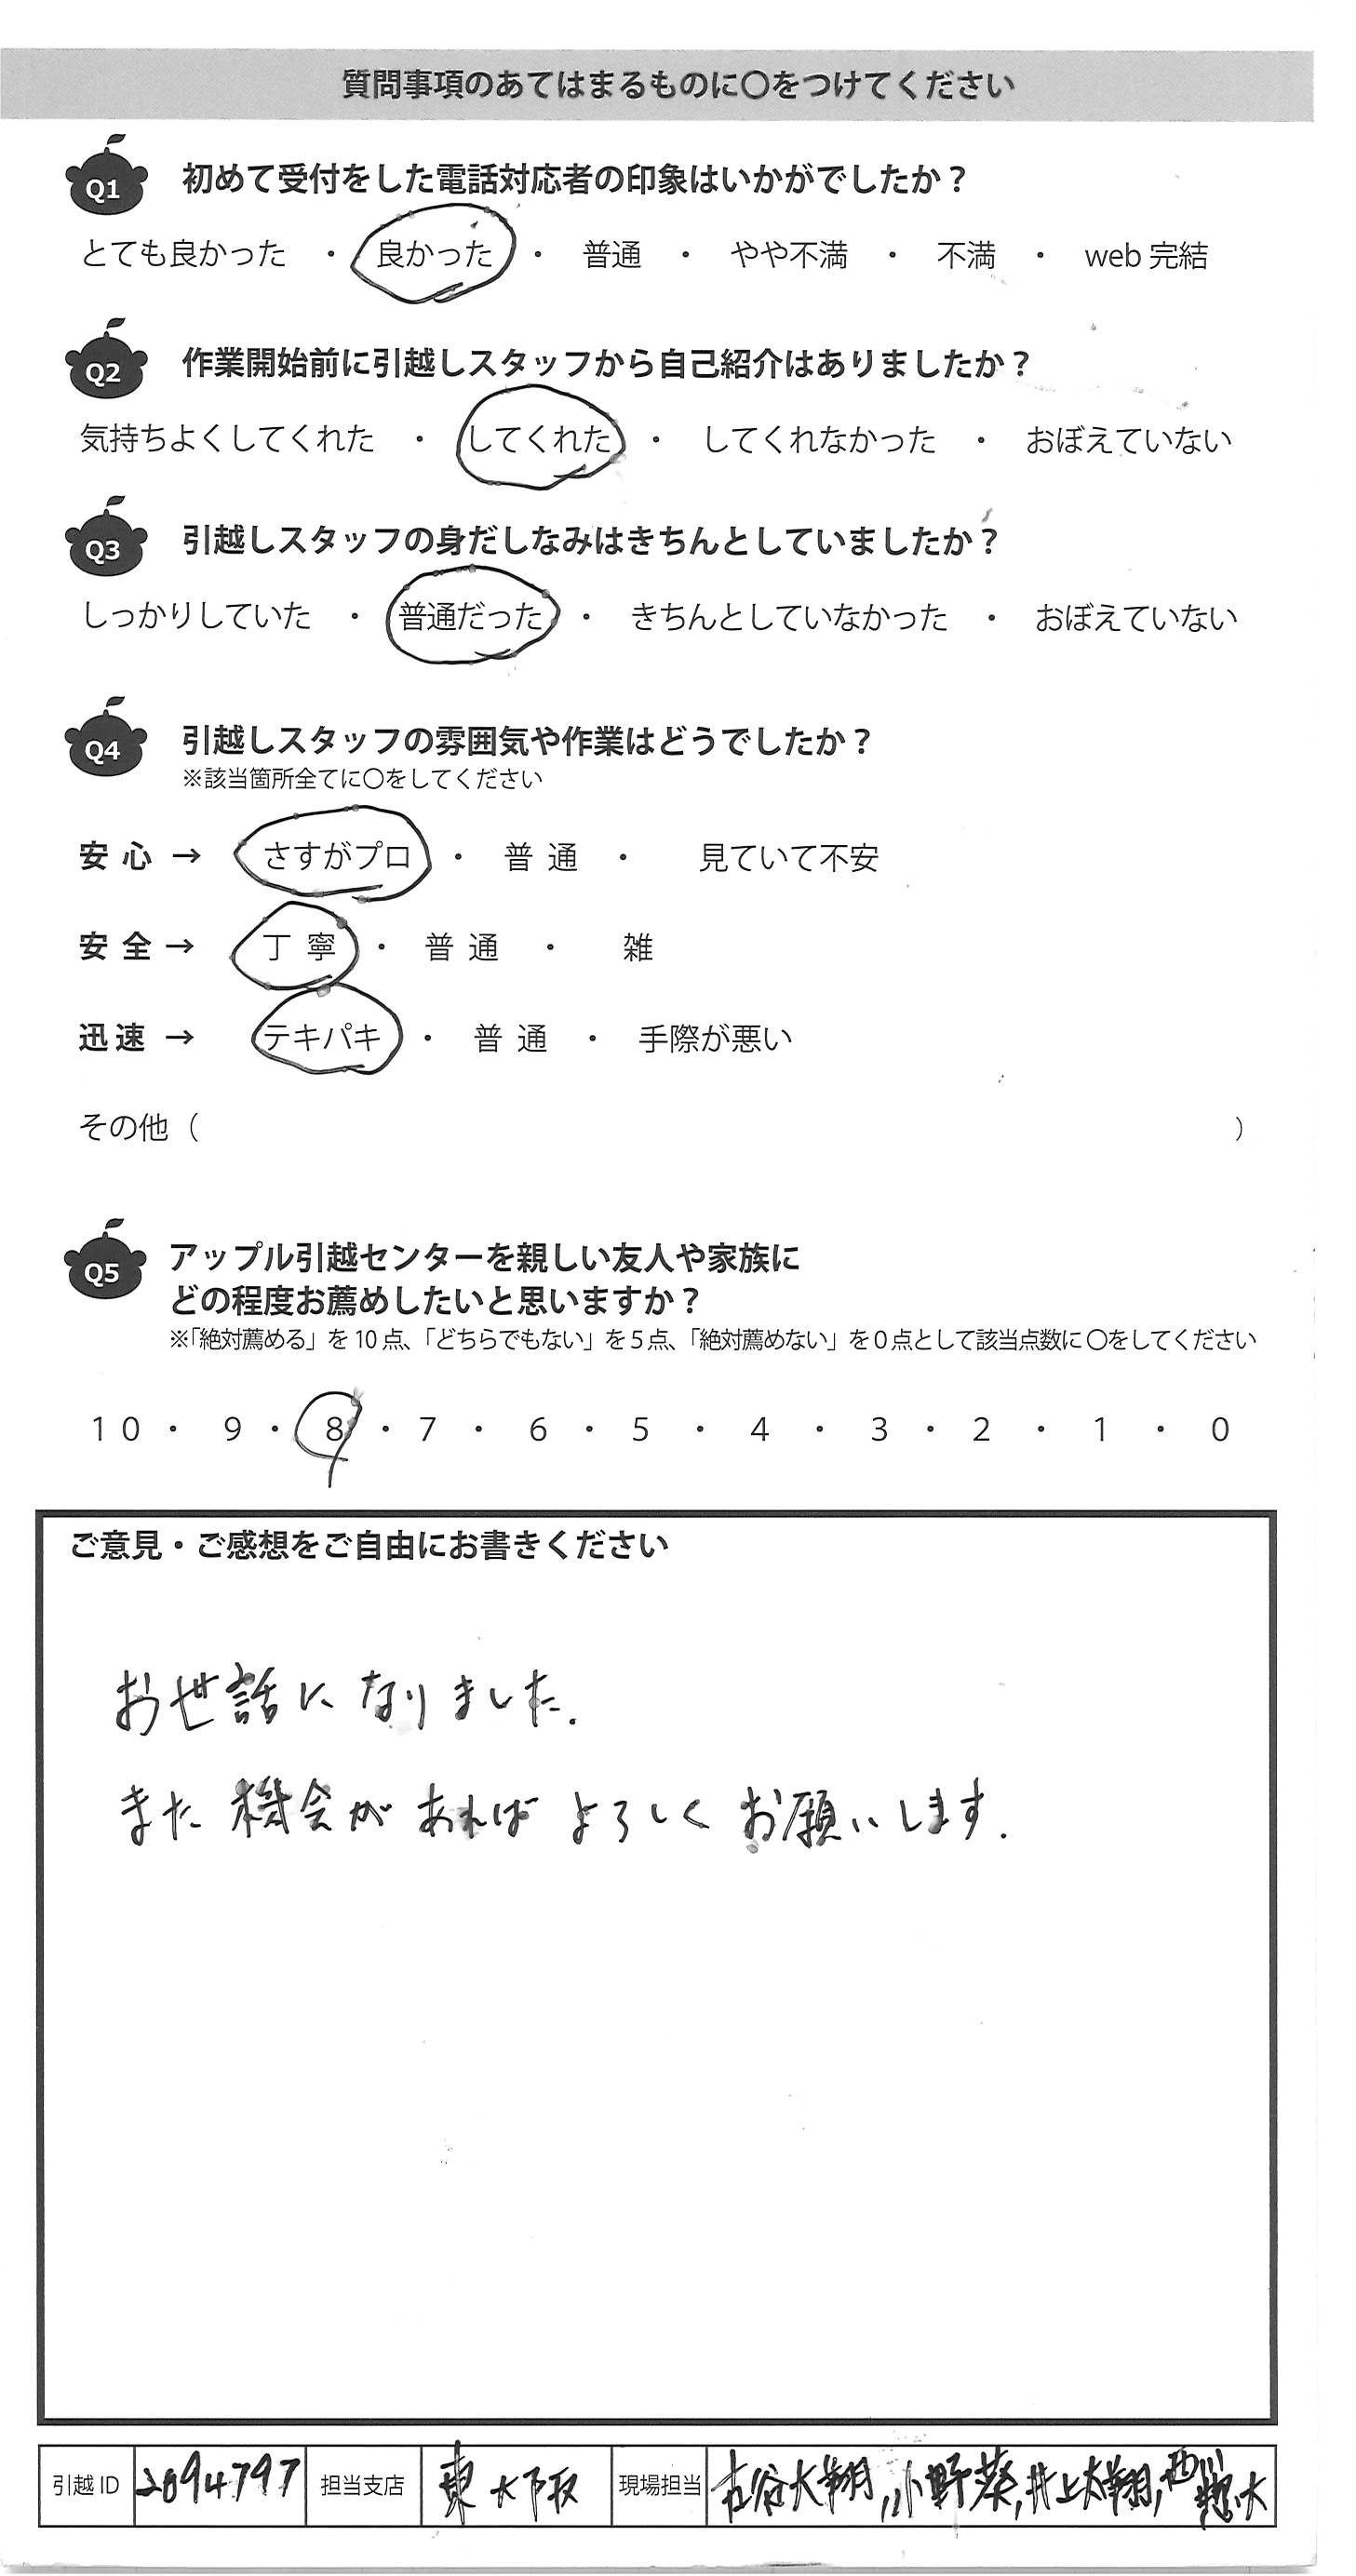 質問事項のあてはまるものに〇をつけてください
Q1 初めて受付をした電話対応者の印象はいかがでしたか？
とても良かった ・ 良かった ・ 普通 ・ やや不満 ・ 不満 ・ web 完結
Q2 作業開始前に引越しスタッフから自己紹介はありましたか？
気持ちよくしてくれた ・ してくれた ・ してくれなかった ・ おぼえていない
Q3 引越しスタッフの身だしなみはきちんとしていましたか？
しっかりしていた ・ 普通だった ・ きちんとしていなかった ・ おぼえていない
Q4 引越しスタッフの雰囲気や作業はどうでしたか？
※該当箇所全てに〇をしてください
安 心 → さすがプロ ・ 普 通 ・ 見ていて不安
安 全 → 丁 寧 ・ 普 通 ・ 雑
迅 速 → テキパキ ・ 普 通 ・ 手際が悪い
その他（ ）
Q5 アップル引越センターを親しい友人や家族に
どの程度お薦めしたいと思いますか？
※「絶対薦める」を 10 点、「どちらでもない」を 5 点、「絶対薦めない」を 0 点として該当点数に 〇をしてください
10 ・ 9 ・ 8 ・ 7 ・ 6 ・ 5 ・ 4 ・ 3 ・ 2 ・ 1 ・ 0
ご意見・ご感想をご自由にお書きください
お世話になりました.
また機会があればよろしくお願いします.
引越 ID 2694797 担当支店 東大阪 現場担当 古谷大翔, 小野葵, 井上大翔, 西川